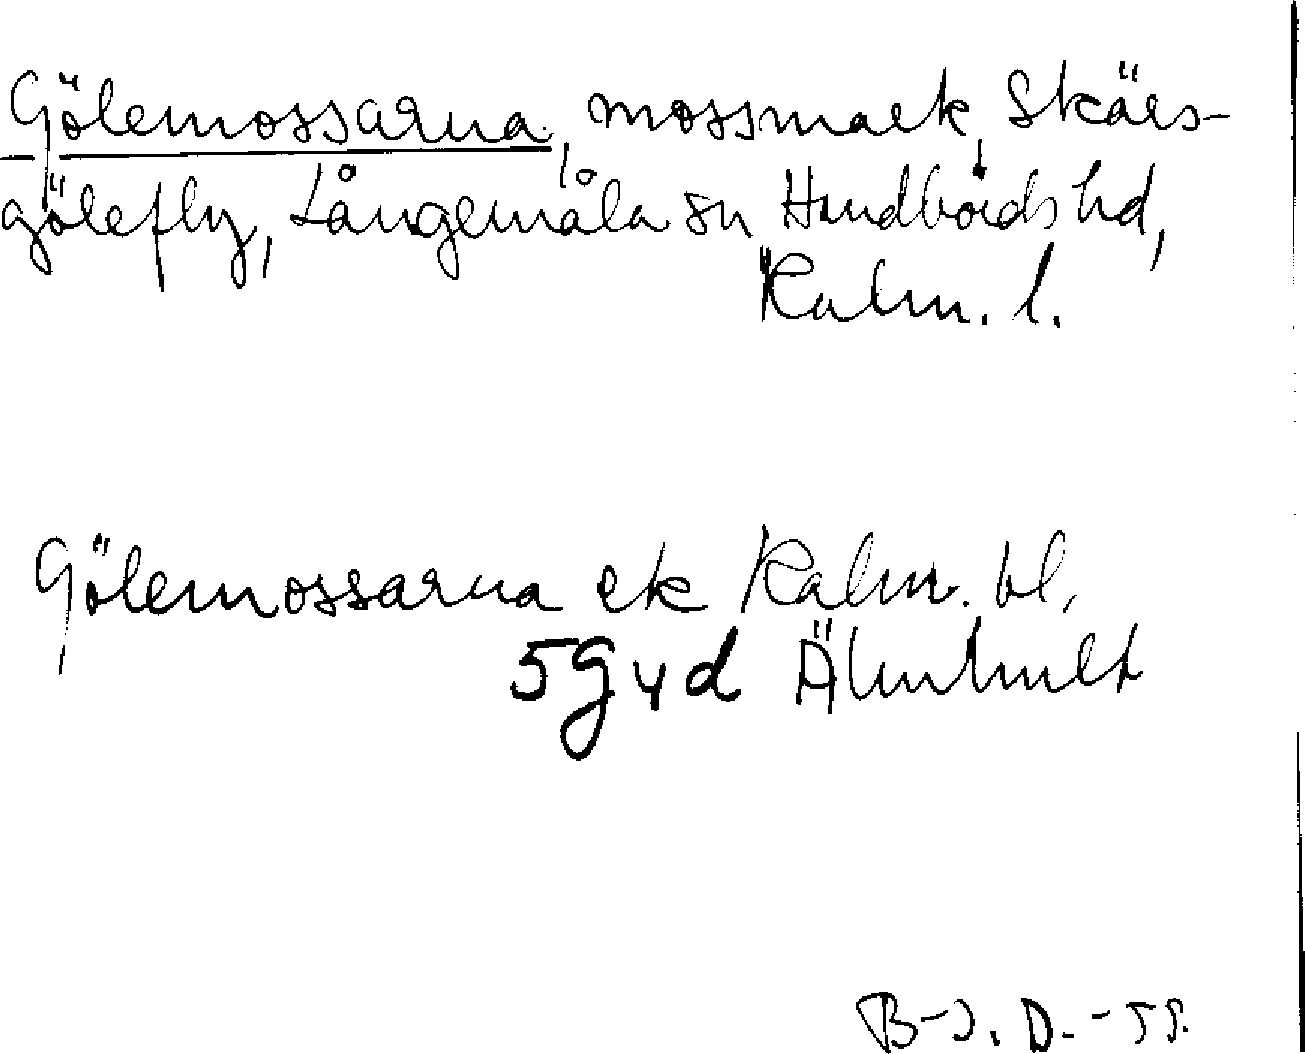 Gölemossarna, mossmark, Skärs-
gölefly, Långemåla sn Handbörds hd,
Kalm. l.
Gölemossarna ek Kalm. bl.
5G yd Älmhult
B-J. D. -58.